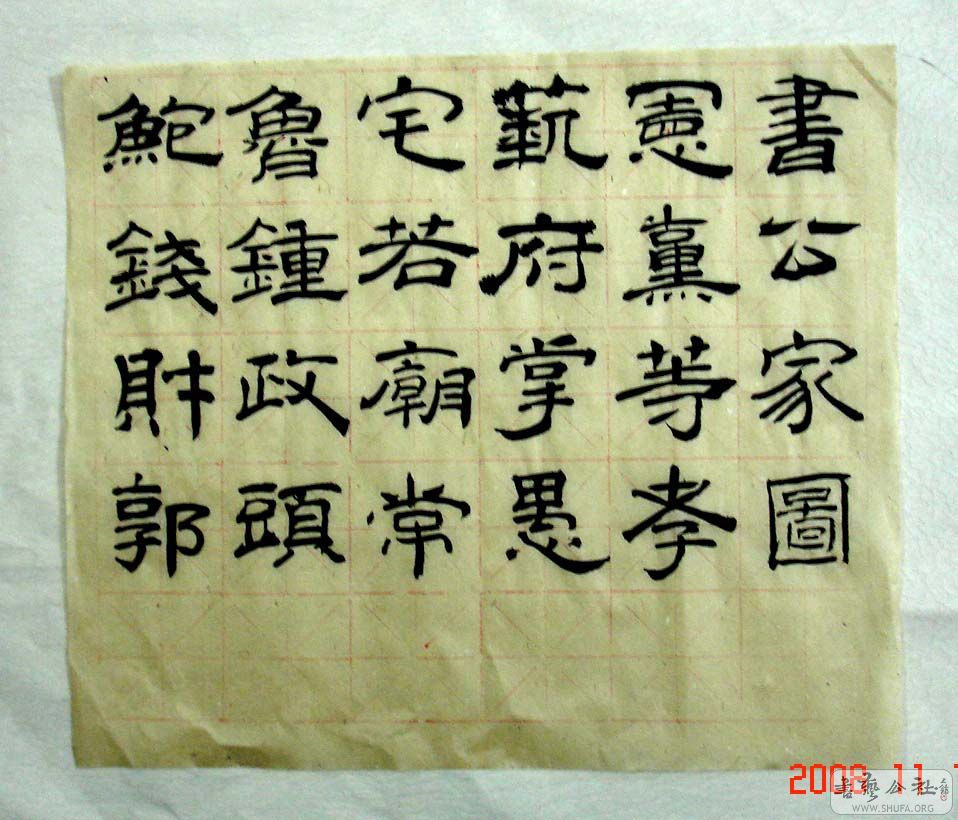 書公家圖
憲黨等孝
蓺府掌愚
宅若廟常
魯鍾政頭
鮑錢財郭
2008 11
書藝公社
WWW.SHUFA.ORG